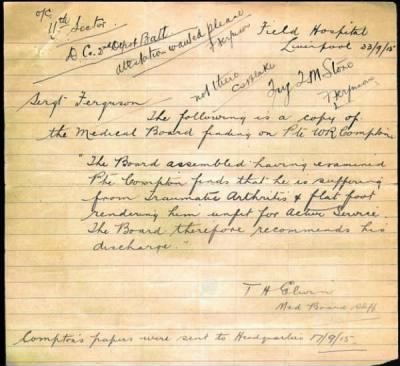 o/c
11th Sector
D. Co. 2nd Depot Batt
attestation wanted please
Ferguson
Field Hospital
Liverpool 23/9/15
not there
Try L.M. Stone
Ferguson
Sergt Ferguson
The following is a copy of
the Medical Board finding on Pte WR Compton
"The Board assembled having examined
Pte Compton finds that he is suffering
from Traumatic Arthritis & flat foot
rendering him unfit for Active Service.
The Board therefore recommends his
discharge."
T H
Med Board Staff
Compton's papers were sent to Headquarters 17/9/15.